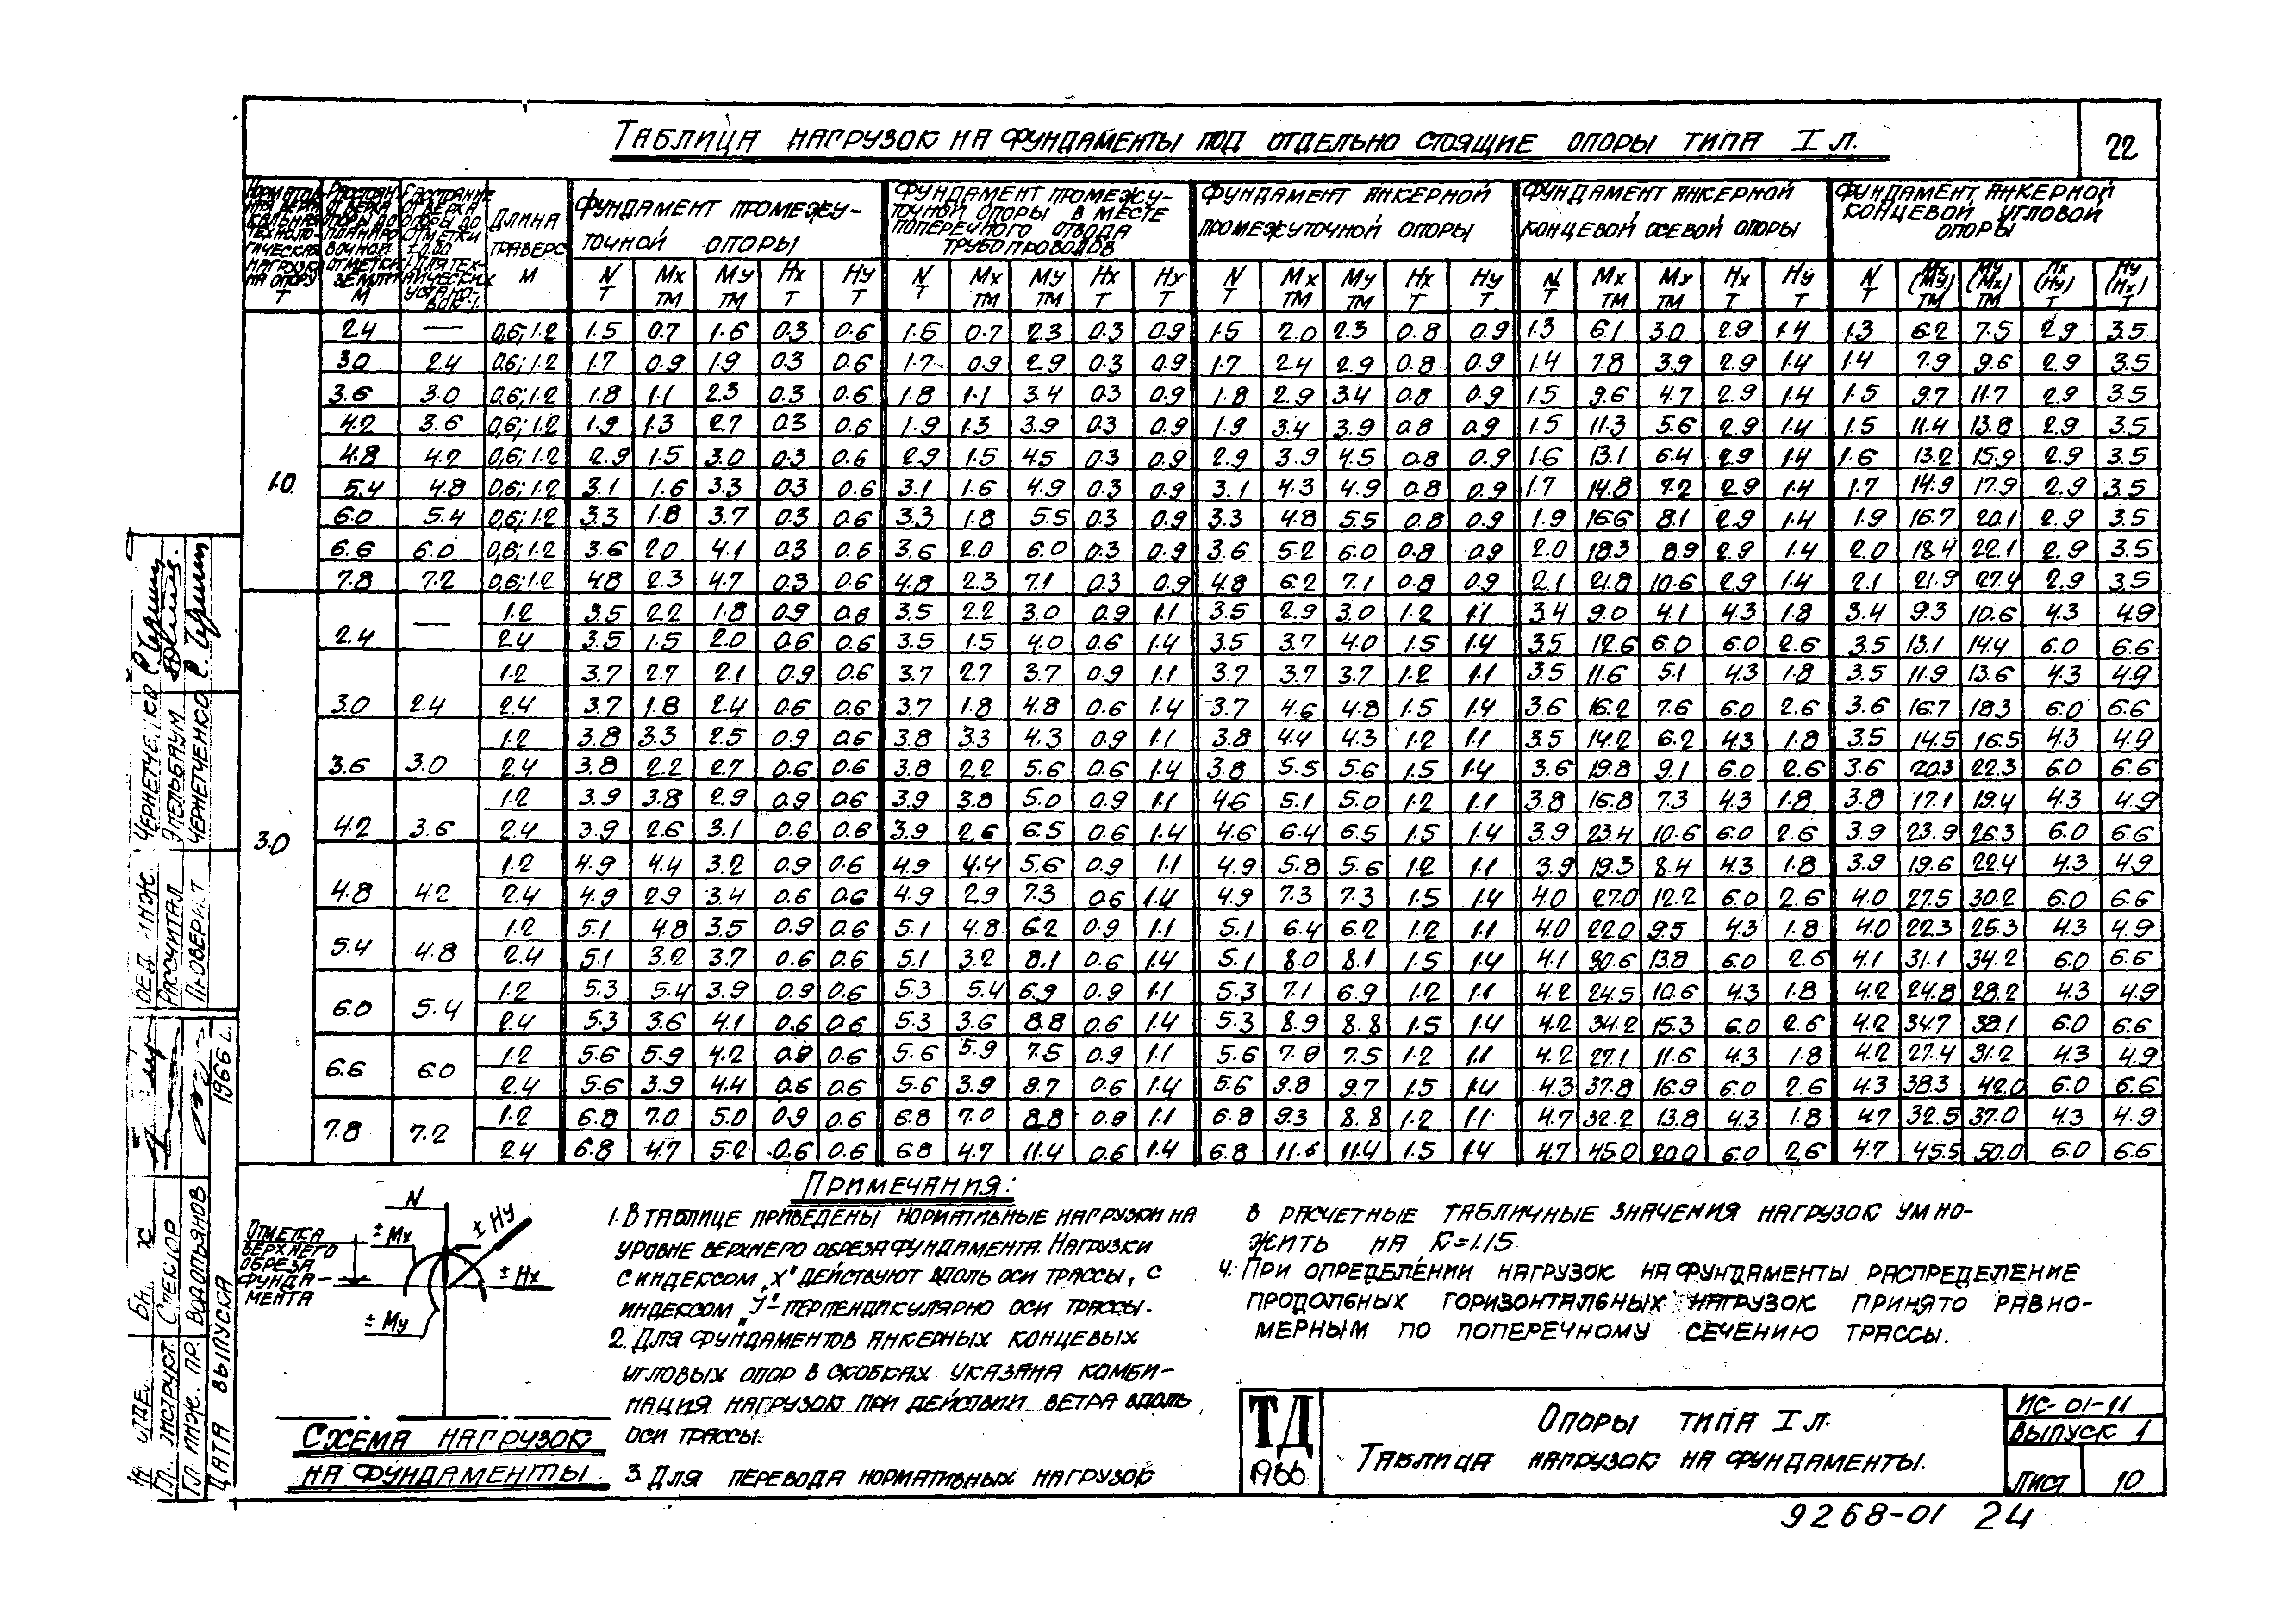 ТАБЛИЦА НАГРУЗОК НА ФУНДАМЕНТЫ ПОД ОТДЕЛЬНО СТОЯЩИЕ ОПОРЫ ТИПА I Л.
22
ДЛИНА ТРАВЕРС М
ФУНДАМЕНТ ПРОМЕЖУ-
ТОЧНОЙ ОПОРЫ
ФУНДАМЕНТ ПРОМЕЖУ-
ТОЧНОЙ ОПОРЫ В МЕСТЕ
ПОПЕРЕЧНОГО ОТВОДА
ТРУБОПРОВОДОВ
ФУНДАМЕНТ АНКЕРНОЙ
ПРОМЕЖУТОЧНОЙ ОПОРЫ
ФУНДАМЕНТ АНКЕРНОЙ
КОНЦЕВОЙ ОСЕВОЙ ОПОРЫ
ФУНДАМЕНТ АНКЕРНОЙ
КОНЦЕВОЙ УГЛОВОЙ
ОПОРЫ
N Mx My Hx Hy N Mx My Hx Hy N Mx My Hx Hy N Mx My Hx Hy N Mx (My) My (Mx) Hx (Hy) Hy (Hx)
Т ТМ ТМ Т Т Т ТМ ТМ Т Т Т ТМ ТМ Т Т Т ТМ ТМ Т Т Т ТМ ТМ Т Т
1.0
2.4 — 0,6; 1.2 1.5 0.7 1.6 0.3 0.6 1.5 0.7 2.3 0.3 0.9 1.5 2.0 2.3 0.8 0.9 1.3 6.1 3.0 2.9 1.4 1.3 6.2 7.5 2.9 3.5
3.0 2.4 0,6; 1.2 1.7 0.9 1.9 0.3 0.6 1.7 0.9 2.9 0.3 0.9 1.7 2.4 2.9 0.8 0.9 1.4 7.8 3.9 2.9 1.4 1.4 7.9 9.6 2.9 3.5
3.6 3.0 0,6; 1.2 1.8 1.1 2.3 0.3 0.6 1.8 1.1 3.4 0.3 0.9 1.8 2.9 3.4 0.8 0.9 1.5 9.6 4.7 2.9 1.4 1.5 9.7 11.7 2.9 3.5
4.2 3.6 0,6; 1.2 1.9 1.3 2.7 0.3 0.6 1.9 1.3 3.9 0.3 0.9 1.9 3.4 3.9 0.8 0.9 1.5 11.3 5.6 2.9 1.4 1.5 11.4 13.8 2.9 3.5
4.8 4.2 0,6; 1.2 2.9 1.5 3.0 0.3 0.6 2.9 1.5 4.5 0.3 0.9 2.9 3.9 4.5 0.8 0.9 1.6 13.1 6.4 2.9 1.4 1.6 13.2 15.9 2.9 3.5
5.4 4.8 0,6; 1.2 3.1 1.6 3.3 0.3 0.6 3.1 1.6 4.9 0.3 0.9 3.1 4.3 4.9 0.8 0.9 1.7 14.8 7.2 2.9 1.4 1.7 14.9 17.9 2.9 3.5
6.0 5.4 0,6; 1.2 3.3 1.8 3.7 0.3 0.6 3.3 1.8 5.5 0.3 0.9 3.3 4.8 5.5 0.8 0.9 1.9 16.6 8.1 2.9 1.4 1.9 16.7 20.1 2.9 3.5
6.6 6.0 0,6; 1.2 3.6 2.0 4.1 0.3 0.6 3.6 2.0 6.0 0.3 0.9 3.6 5.2 6.0 0.8 0.9 2.0 18.3 8.9 2.9 1.4 2.0 18.4 22.1 2.9 3.5
7.8 7.2 0,6; 1.2 4.8 2.3 4.7 0.3 0.6 4.8 2.3 7.1 0.3 0.9 4.8 6.2 7.1 0.8 0.9 2.1 21.8 10.6 2.9 1.4 2.1 21.9 27.4 2.9 3.5
3.0
2.4 — 1.2 3.5 2.2 1.8 0.9 0.6 3.5 2.2 3.0 0.9 1.1 3.5 2.9 3.0 1.2 1.1 3.4 9.0 4.1 4.3 1.8 3.4 9.3 10.6 4.3 4.9
2.4 3.5 1.5 2.0 0.6 0.6 3.5 1.5 4.0 0.6 1.4 3.5 3.7 4.0 1.5 1.4 3.5 12.6 6.0 6.0 2.6 3.5 13.1 14.4 6.0 6.6
3.0 2.4 1.2 3.7 2.7 2.1 0.9 0.6 3.7 2.7 3.7 0.9 1.1 3.7 3.7 3.7 1.2 1.1 3.5 11.6 5.1 4.3 1.8 3.5 11.9 13.6 4.3 4.9
2.4 3.7 1.8 2.4 0.6 0.6 3.7 1.8 4.8 0.6 1.4 3.7 4.6 4.8 1.5 1.4 3.6 16.2 7.6 6.0 2.6 3.6 16.7 18.3 6.0 6.6
3.6 3.0 1.2 3.8 3.3 2.5 0.9 0.6 3.8 3.3 4.3 0.9 1.1 3.8 4.4 4.3 1.2 1.1 3.5 14.2 6.2 4.3 1.8 3.5 14.5 16.5 4.3 4.9
2.4 3.8 2.2 2.7 0.6 0.6 3.8 2.2 5.6 0.6 1.4 3.8 5.5 5.6 1.5 1.4 3.6 19.8 9.1 6.0 2.6 3.6 20.3 22.3 6.0 6.6
4.2 3.6 1.2 3.9 3.8 2.9 0.9 0.6 3.9 3.8 5.0 0.9 1.1 4.6 5.1 5.0 1.2 1.1 3.8 16.8 7.3 4.3 1.8 3.8 17.1 19.4 4.3 4.9
2.4 3.9 2.6 3.1 0.6 0.6 3.9 2.6 6.5 0.6 1.4 4.6 6.4 6.5 1.5 1.4 3.9 23.4 10.6 6.0 2.6 3.9 23.9 26.3 6.0 6.6
4.8 4.2 1.2 4.9 4.4 3.2 0.9 0.6 4.9 4.4 5.6 0.9 1.1 4.9 5.8 5.6 1.2 1.1 3.9 19.3 8.4 4.3 1.8 3.9 19.6 22.4 4.3 4.9
2.4 4.9 2.9 3.4 0.6 0.6 4.9 2.9 7.3 0.6 1.4 4.9 7.3 7.3 1.5 1.4 4.0 27.0 12.2 6.0 2.6 4.0 27.5 30.2 6.0 6.6
5.4 4.8 1.2 5.1 4.8 3.5 0.9 0.6 5.1 4.8 6.2 0.9 1.1 5.1 6.4 6.2 1.2 1.1 4.0 22.0 9.5 4.3 1.8 4.0 22.3 25.3 4.3 4.9
2.4 5.1 3.2 3.7 0.6 0.6 5.1 3.2 8.1 0.6 1.4 5.1 8.0 8.1 1.5 1.4 4.1 30.6 13.8 6.0 2.6 4.1 31.1 34.2 6.0 6.6
6.0 5.4 1.2 5.3 5.4 3.9 0.9 0.6 5.3 5.4 6.9 0.9 1.1 5.3 7.1 6.9 1.2 1.1 4.2 24.5 10.6 4.3 1.8 4.2 24.8 28.2 4.3 4.9
2.4 5.3 3.6 4.1 0.6 0.6 5.3 3.6 8.8 0.6 1.4 5.3 8.9 8.8 1.5 1.4 4.2 34.2 15.3 6.0 2.6 4.2 34.7 38.1 6.0 6.6
6.6 6.0 1.2 5.6 5.9 4.2 0.9 0.6 5.6 5.9 7.5 0.9 1.1 5.6 7.8 7.5 1.2 1.1 4.2 27.1 11.6 4.3 1.8 4.2 27.4 31.2 4.3 4.9
2.4 5.6 3.9 4.4 0.6 0.6 5.6 3.9 9.7 0.6 1.4 5.6 9.8 9.7 1.5 1.4 4.3 37.8 16.9 6.0 2.6 4.3 38.3 42.0 6.0 6.6
7.8 7.2 1.2 6.8 7.0 5.0 0.9 0.6 6.8 7.0 8.8 0.9 1.1 6.8 9.3 8.8 1.2 1.1 4.7 32.2 13.8 4.3 1.8 4.7 32.5 37.0 4.3 4.9
2.4 6.8 4.7 5.2 0.6 0.6 6.8 4.7 11.4 0.6 1.4 6.8 11.6 11.4 1.5 1.4 4.7 45.0 20.0 6.0 2.6 4.7 45.5 50.0 6.0 6.6
ПРИМЕЧАНИЯ:
1. В ТАБЛИЦЕ ПРИВЕДЕНЫ НОРМАТИВНЫЕ НАГРУЗКИ НА
УРОВНЕ ВЕРХНЕГО ОБРЕЗА ФУНДАМЕНТА. НАГРУЗКИ
С ИНДЕКСОМ „X" ДЕЙСТВУЮТ ВДОЛЬ ОСИ ТРАССЫ, С
ИНДЕКСОМ „У"-ПЕРПЕНДИКУЛЯРНО ОСИ ТРАССЫ.
2. ДЛЯ ФУНДАМЕНТОВ АНКЕРНЫХ КОНЦЕВЫХ
УГЛОВЫХ ОПОР В СКОБКАХ УКАЗАНА КОМБИ-
НАЦИЯ НАГРУЗОК ПРИ ДЕЙСТВИИ ВЕТРА ВДОЛЬ
ОСИ ТРАССЫ.
3. ДЛЯ ПЕРЕВОДА НОРМАТИВНЫХ НАГРУЗОК
В РАСЧЕТНЫЕ ТАБЛИЧНЫЕ ЗНАЧЕНИЯ НАГРУЗОК УМНО-
ЖИТЬ НА K=1.15.
4. ПРИ ОПРЕДЕЛЕНИИ НАГРУЗОК НА ФУНДАМЕНТЫ РАСПРЕДЕЛЕНИЕ
ПРОДОЛЬНЫХ ГОРИЗОНТАЛЬНЫХ НАГРУЗОК ПРИНЯТО РАВНО-
МЕРНЫМ ПО ПОПЕРЕЧНОМУ СЕЧЕНИЮ ТРАССЫ.
N
± Mx
± Hy
± Hx
± My
ОТМЕТКА
ВЕРХНЕГО
ОБРЕЗА
ФУНДА-
МЕНТА
СХЕМА НАГРУЗОК
НА ФУНДАМЕНТЫ
ТД
1966
ОПОРЫ ТИПА I Л.
ТАБЛИЦА НАГРУЗОК НА ФУНДАМЕНТЫ.
ИС-01-11
ВЫПУСК 1
ЛИСТ 10
9268-01 24
ЧЕРНЕТЧЕНКО
ЭПЕЛЬБАУМ
ЧЕРНЕТЧЕНКО
ВЕД. ИНЖ.
РАССЧИТАЛ
ПРОВЕРИЛ
СПЕКТОР
ВОДОПЬЯНОВ
ГЛ. ИНЖ. ПР.
ДАТА ВЫПУСКА 1966 г.